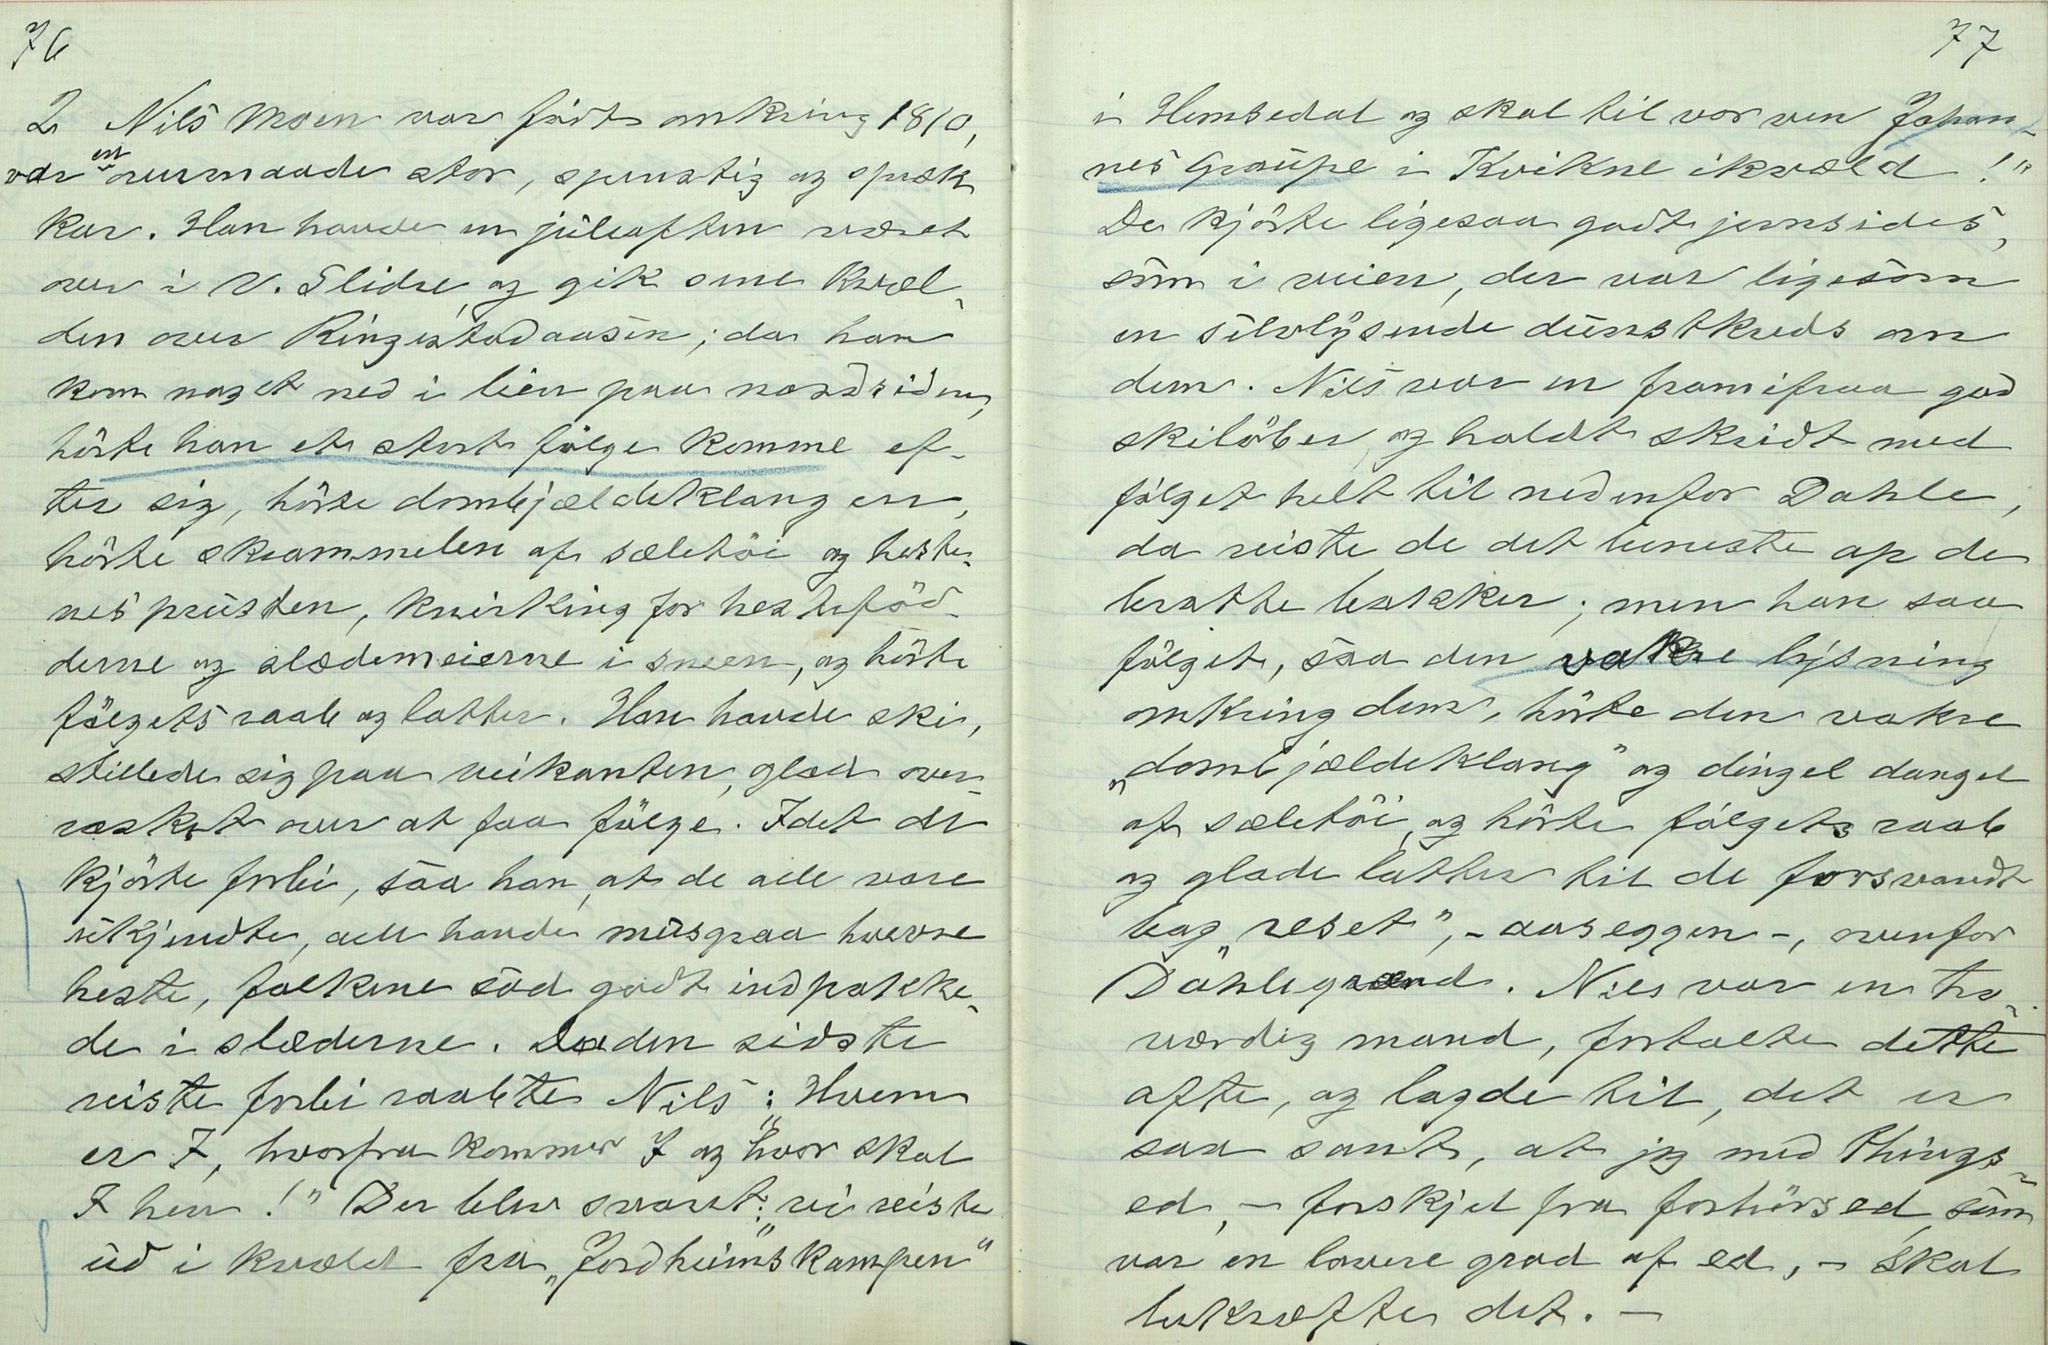 76
2 Nils Moen var född omkring 1810,
var en overmaade stor, spenstig og spræk
kar. Han havde en juleaften været
over i V. Slidre og gik ome kvæl-
den over Ringestadaasen; da han
kom noget ned i lien paa nordsiden,
hörte han et stort fölge komme ef-
ter sig, hörte dombjældeklangen,
hörte skrammelen af sæletöi og heste-
nes prusten, knirking for hesteföd-
derne og slædemeierne i sneen, og hörte
fölgets raab og latter. Han havde ski,
stillede sig paa veikanten, glad over-
rasket over at faa fölge. Idet de
kjörte forbi, saa han, at de alle vare
ukjendte, alle havde musgraa hvevne
heste, folkene sad godt indpakke-
de i slæderne. Da den sidste
reiste forbi raabte Nils: „Hvem
er I, hvorfra kommer I og hvor skal
I hen!" Der blev svaret: „vi reiste
ud i kvæld fra „Jordheimskampen"
77
i Hemsedal og skal til vor ven Johan-
nes Graupe i Kvikne ikvæld!"
De kjörte ligesaa godt jemsides,
som i veien, der var ligesom
en sölvlysende dunstkreds om
dem. Nils var en framifraa god
skilöber, og holdt skridt med
fölget helt til nedenfor Dahle,
da reiste de det beneste op de
bratte bakker; men han saa
fölget, saa den vakre lysning
omkring dem, hörte den vakre
„dombjældeklang" og dingel dangel
af sæletöi, og hörte fölgets raab
og glade latter til de forsvandt
bag „reset", - aaseggen -, ovenfor
Dahlegrænd. Nils var en tro-
værdig mand, fortalte dette
ofte, og lagde til, det er
saa sant, at jeg med Things-
ed, - forskjel fra forhörsed, som
var en lavere grad af ed, - skal
bekræfte det. -